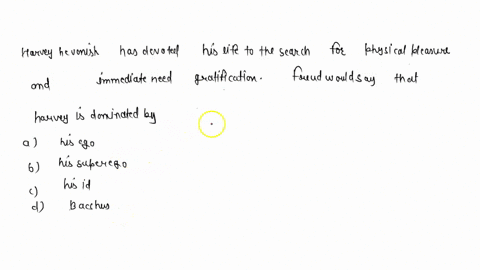 Harvey hevonish has devoted his life to the search for physical pleasure
and immediate need gratification. freud would say that
harvey is dominated by
a) his ego
b) his superego
c) his id
d) Bacchus